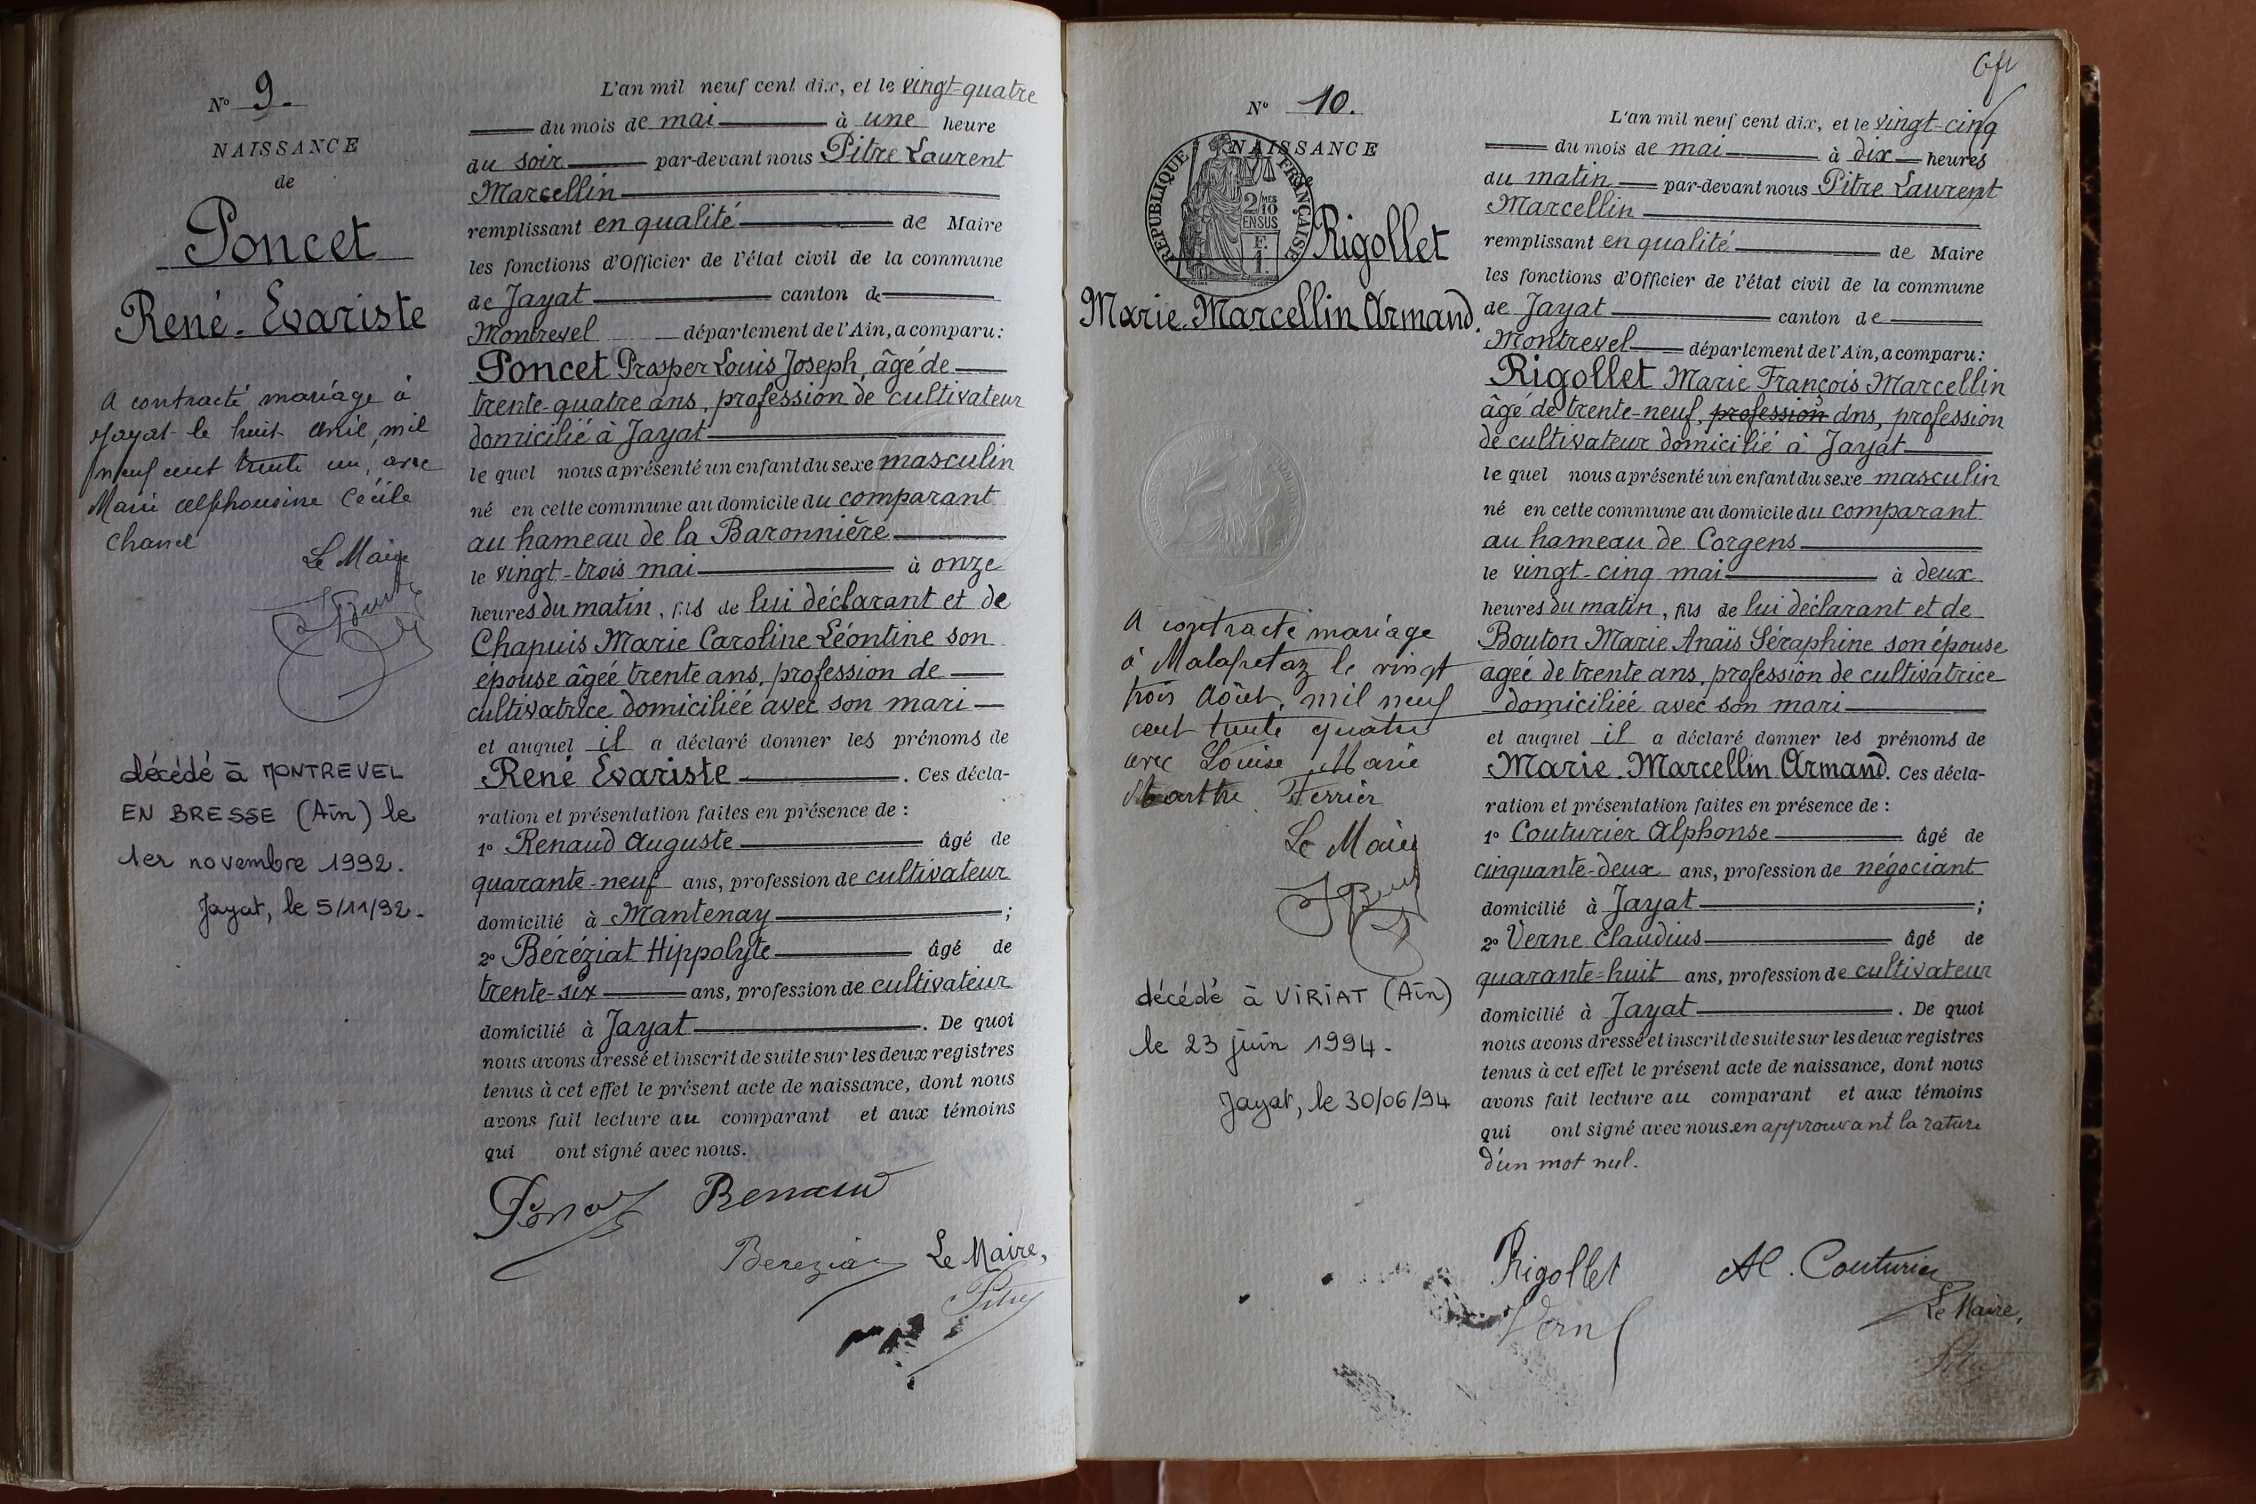 N° 9.
NAISSANCE
de
Poncet
René-Evariste
A contracté mariage à
Jayat le huit avril mil
neuf cent trente un, avec
Marie Alphonsine Cécile
Chanel
Le Maire
décédé à MONTREVEL
EN BRESSE (Ain) le
1er novembre 1992.
Jayat, le 5/11/92.
L'an mil neuf cent dix, et le vingt-quatre
du mois de mai à une heure
du soir par-devant nous Pitre Laurent
Marcellin
remplissant en qualité de Maire
les fonctions d'Officier de l'état civil de la commune
de Jayat canton de
Montrevel département de l'Ain, a comparu:
Poncet Prosper Louis Joseph, âgé de
trente-quatre ans, profession de cultivateur
domicilié à Jayat
le quel nous a présenté un enfant du sexe masculin
né en cette commune au domicile du comparant
au hameau de la Baronnière
le vingt-trois mai à onze
heures du matin, fils de lui déclarant et de
Chapuis Marie Caroline Léontine son
épouse âgée trente ans, profession de
cultivatrice domiciliée avec son mari
et auquel il a déclaré donner les prénoms de
René Evariste. Ces décla-
ration et présentation faites en présence de :
1° Renaud Auguste âgé de
quarante-neuf ans, profession de cultivateur
domicilié à Mantenay ;
2° Béréziat Hippolyte âgé de
trente-six ans, profession de cultivateur
domicilié à Jayat. De quoi
nous avons dressé et inscrit de suite sur les deux registres
tenus à cet effet le présent acte de naissance, dont nous
avons fait lecture au comparant et aux témoins
qui ont signé avec nous.
Poncet Renaud
Bereziat Le Maire,
Pitre
N° 10.
NAISSANCE
REPUBLIQUE FRANÇAISE
2/10 MES
EN SUS
F.
1.
Rigollet
Marie-Marcellin Armand.
A contracté mariage
à Malafretaz le vingt
trois Août, mil neuf
cent trente quatre
avec Louise Marie
Marthe Ferrier
Le Maire
décédé à VIRIAT (Ain)
le 23 juin 1994.
Jayat, le 30/06/94
L'an mil neuf cent dix, et le vingt-cinq
du mois de mai à dix heures
du matin par-devant nous Pitre Laurent
Marcellin
remplissant en qualité de Maire
les fonctions d'Officier de l'état civil de la commune
de Jayat canton de
Montrevel département de l'Ain, a comparu:
Rigollet Marie François Marcellin
âgé de trente-neuf, profession ans, profession
de cultivateur domicilié à Jayat
le quel nous a présenté un enfant du sexe masculin
né en cette commune au domicile du comparant
au hameau de Corgens
le vingt-cinq mai à deux
heures du matin, fils de lui déclarant et de
Bouton Marie Anaïs Séraphine son épouse
âgée de trente ans, profession de cultivatrice
domiciliée avec son mari
et auquel il a déclaré donner les prénoms de
Marie-Marcellin Armand. Ces décla-
ration et présentation faites en présence de :
1° Couturier Alphonse âgé de
cinquante-deux ans, profession de négociant
domicilié à Jayat ;
2° Verne Claudius âgé de
quarante-huit ans, profession de cultivateur
domicilié à Jayat. De quoi
nous avons dressé et inscrit de suite sur les deux registres
tenus à cet effet le présent acte de naissance, dont nous
avons fait lecture au comparant et aux témoins
qui ont signé avec nous en approuvant la rature
d'un mot nul.
Rigollet Al. Couturier
Verne Le Maire,
Pitre